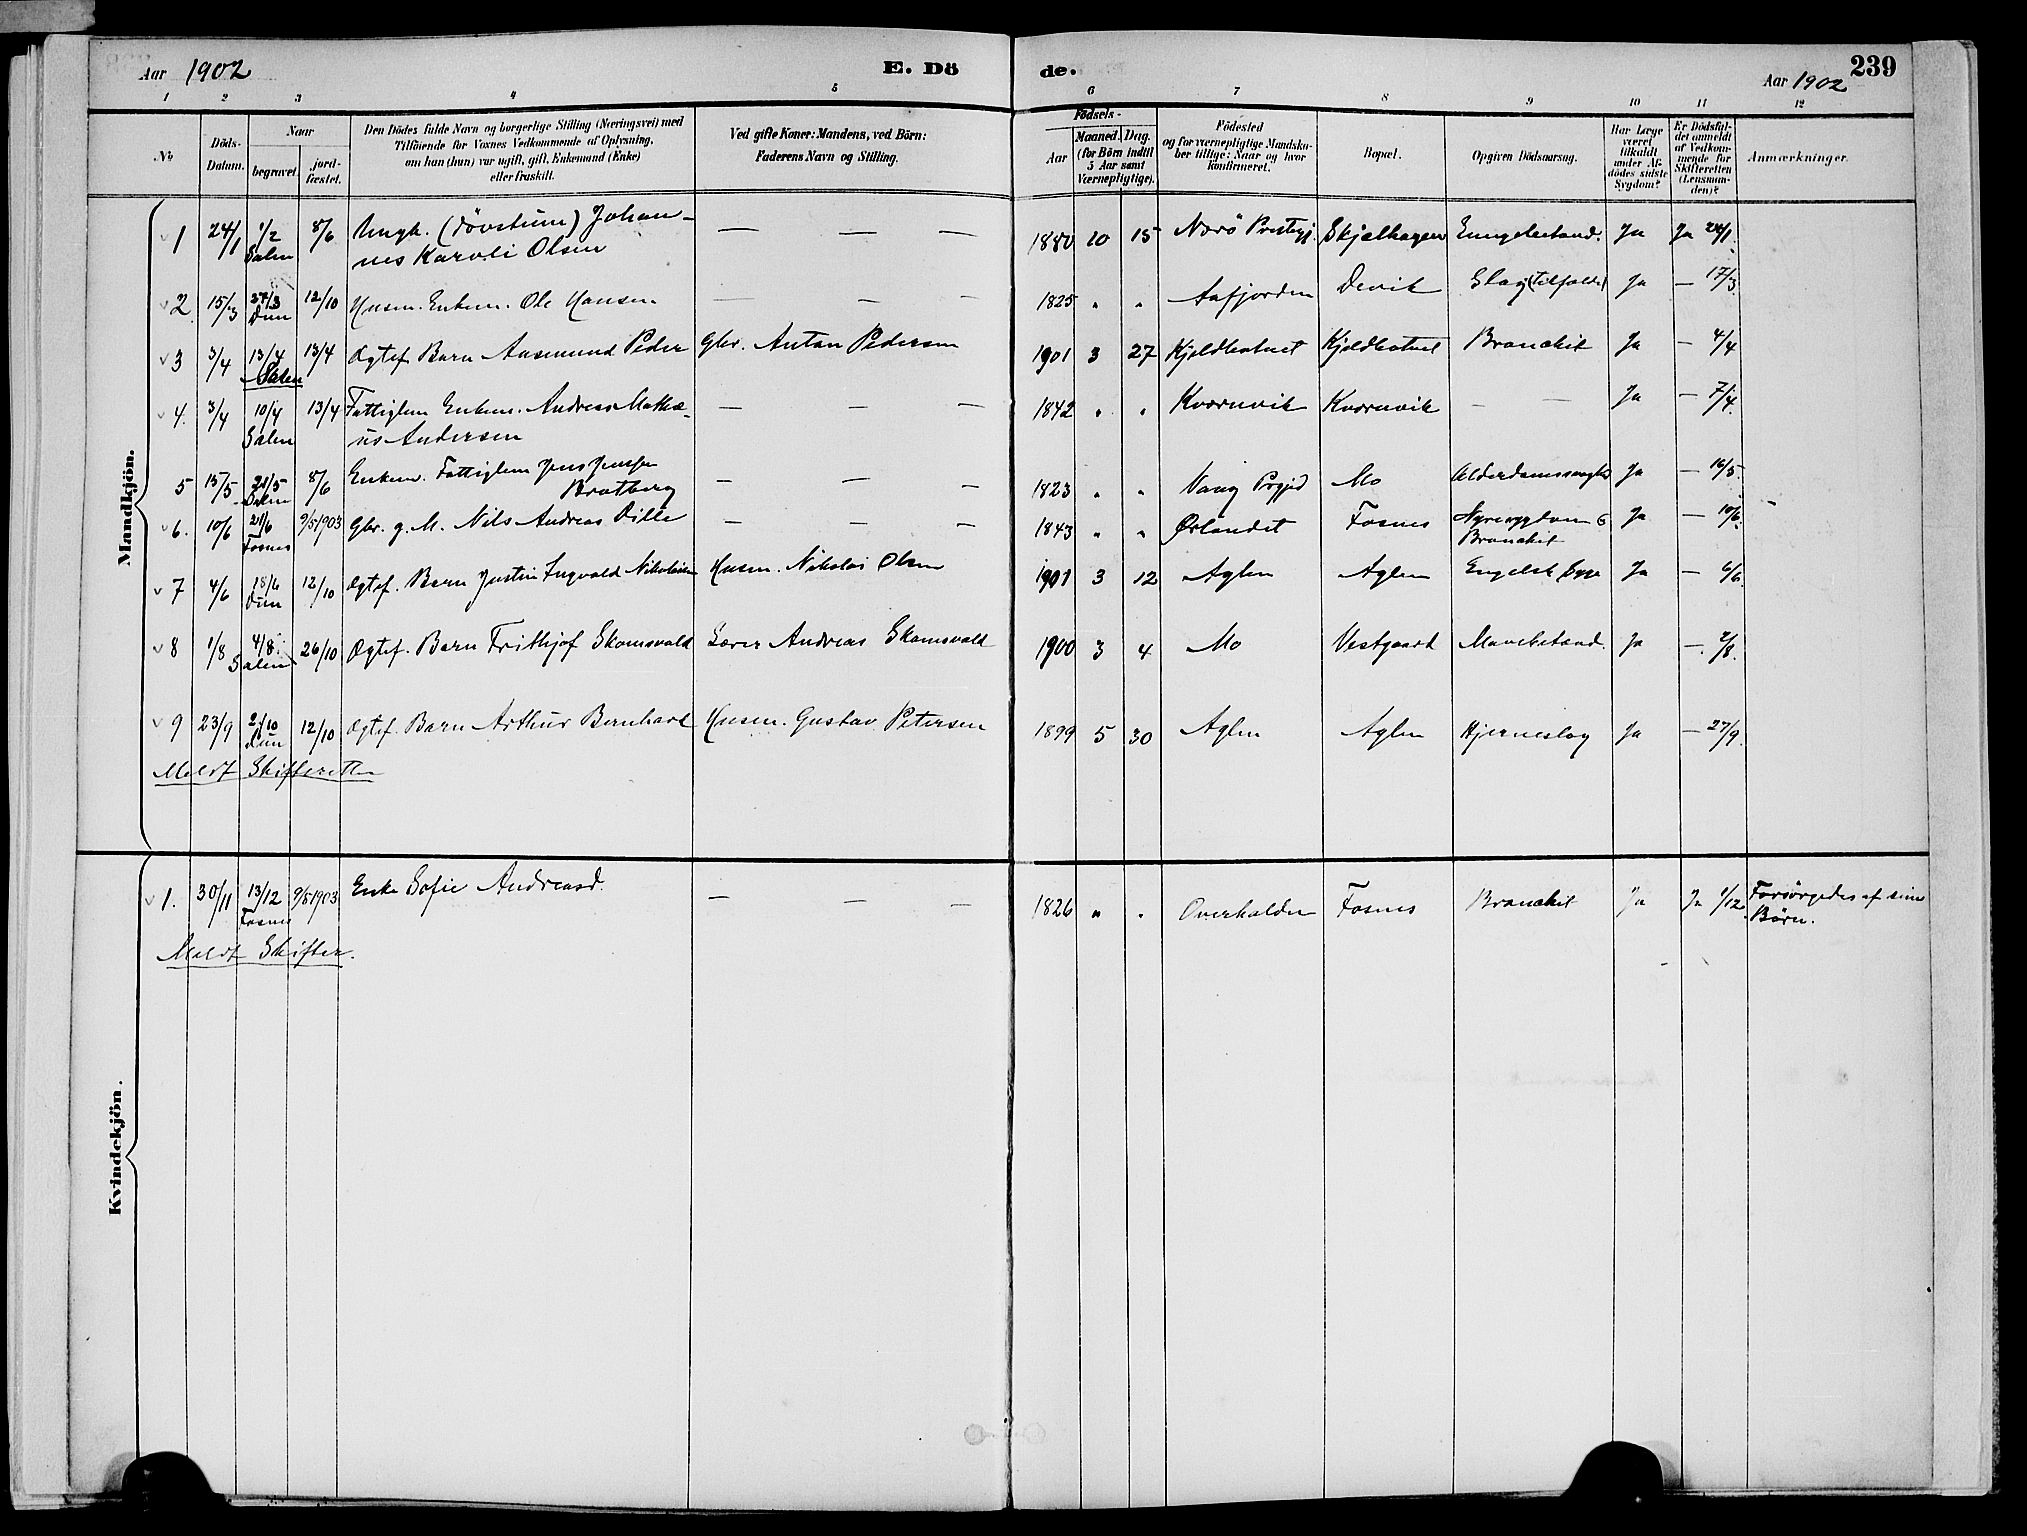 Aar 1902
E. Dö
de.
Aar 1902
239
1 2 3 4 5 6 7 8 9 10 11 12
No
Döds-
Datum.
Naar
begravet.
jord-
fæstet.
Den Dödes fulde Navn og borgerlige Stilling (Næringsvei) med
Tilföiende for Voxnes Vedkommende af Oplysning,
om han (hun) var ugift, gift, Enkemand (Enke)
eller fraskilt.
Ved gifte Koner: Mandens, ved Börn:
Faderens Navn og Stilling.
Födsels-
Aar
Maaned. Dag.
(for Börn indtil
5 Aar samt
Værnepligtige).
Födested
og for værnepligtige Mandska-
ber tillige: Naar og hvor
konfirmeret.
Bopæl.
Opgiven Dödsaarsag.
Har Læge
været
tilkaldt
under Af-
dödes sidste
Sygdom?
Er Dödsfal-
det anmeldt
af Vedkom-
mende for
Skifteretten
(Lensman-
den)?
Anmærkninger.
Mandkjön.
1 24/1 1/2 8/6 Ungk. (døvstum) Johan- — — — 1880 10 15 Nærö Prstgj. Skjelhagen Lungebetænd. Ja Ja 24/1.
Salen nes Karoli Olsen
2 15/3 27/3 12/10 Husm. Enkem. Ole Hansen — — — 1825 " " Aafjorden Devik Slag (tilfælde) Ja — 17/3
Dun
3 3/4 13/4 13/4 Ægtef. Barn Aasmund Peder Gbr. Anton Pedersen 1901 3 27 Kjeldbotnet Kjeldbotnet Bronchit Ja — 4/4
Salen
4. 3/4 10/4 13/4 Fattiglem Enkem. Andreas Mathæ- — — — 1842 " " Kvernvik Kvernvik — — Ja — 7/4.
Salen us Andersen
5 15/5 21/5 8/6 Enkem. Fattiglem Jens Jensen — — — 1823 " " Vang Prgjd Mo Alderdomssvaghed Ja — 16/5.
Salen Bratberg
6. 10/6 21/6 9/5 1903 Gbr. g. M. Nils Andreas Dille — — — 1843 " " Ørlandet Fosnes Nyresygdom & Ja — 10/6.
Fosnes Bronchit
7 4/6 18/6 12/10 Ægtef. Barn Justin Ingvald Nikolaisen Husm. Nikolai Olsen 1901 3 12 Aglen Aglen Engelsk Syge Ja — 6/6
Dun
8 1/8 4/8 26/10 Ægtef. Barn Frithjof Skomsvold Lærer Andreas Skomsvold 1900 3 4 Mo Vestgaard Mavebetænd. Ja — 2/8.
Salen
9 23/9 2/10 12/10 Ægtef. Barn Arthur Bernhard Husm. Gustav Petersen 1899 5 30 Aglen Aglen Hjerneslag Ja — 27/9.
Dun
Meldt Skifteretten
Kvindekjön.
1. 30/11 13/12 9/5 1903 Enke Sofie Andreasd. — — — 1826 " " Overhalden Fosnes Bronchit Ja Ja 1/12. Forsørgedes af sine
Fosnes Børn.
Meldt Skifter.